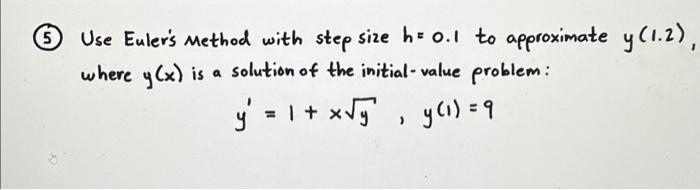 ⑤ Use Euler's Method with step size h = 0.1 to approximate y(1.2),
where y(x) is a solution of the initial-value problem:
y' = 1 + x√y , y(1) = 9